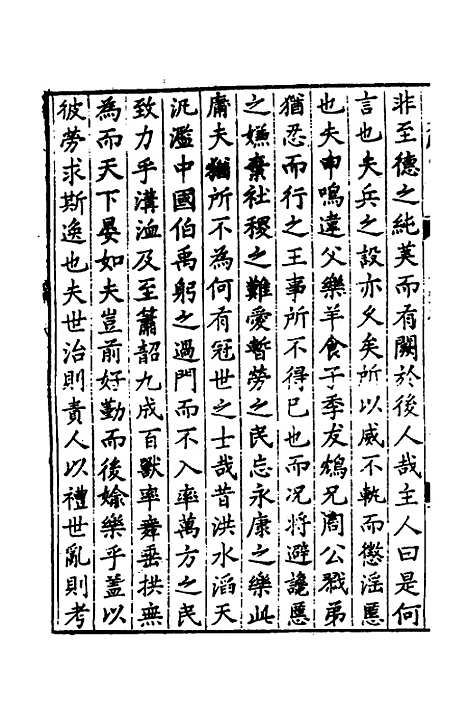 非至德之純美而有闕於後人哉主人曰是何
言也夫兵之設亦久矣所以威不軌而懲淫慝
也夫申鳴違父樂羊食子季友鴆兄周公戮弟
猶忍而行之王事所不得已也而況將避讒慝
之嫌棄社稷之難愛暫勞之民忘永康之樂此
庸夫猶所不為何有冠世之士哉昔洪水滔天
汎濫中國伯禹躬之過門而不入率萬方之民
致力乎溝洫及至簫韶九成百獸率舞垂拱無
為而天下晏如夫豈前好勤而後媮樂乎蓋以
彼勞求斯逸也夫世治則責人以禮世亂則考